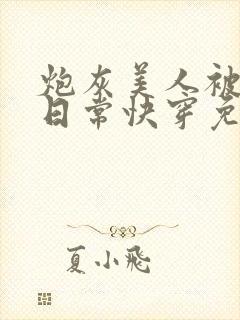 炮灰美人被
日常快穿免
夏小飛